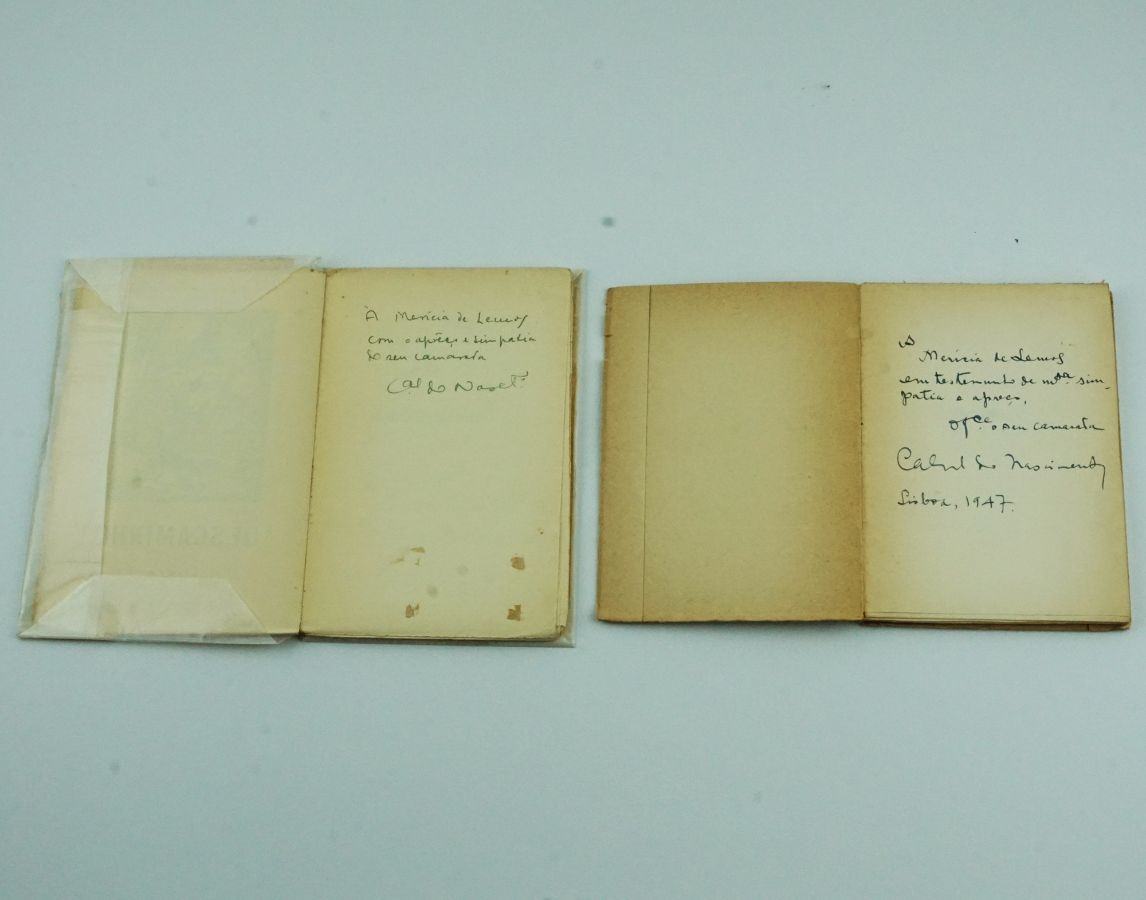 À Merícia de Lemos
com o aprêço e simpatia
do seu camarada
Cal do Nascto
À
Merícia de Lemos
em testemunho de mta. sim-
patia e apreço,
ofce. o seu camarada
Cabral do Nascimento
Lisboa, 1947.